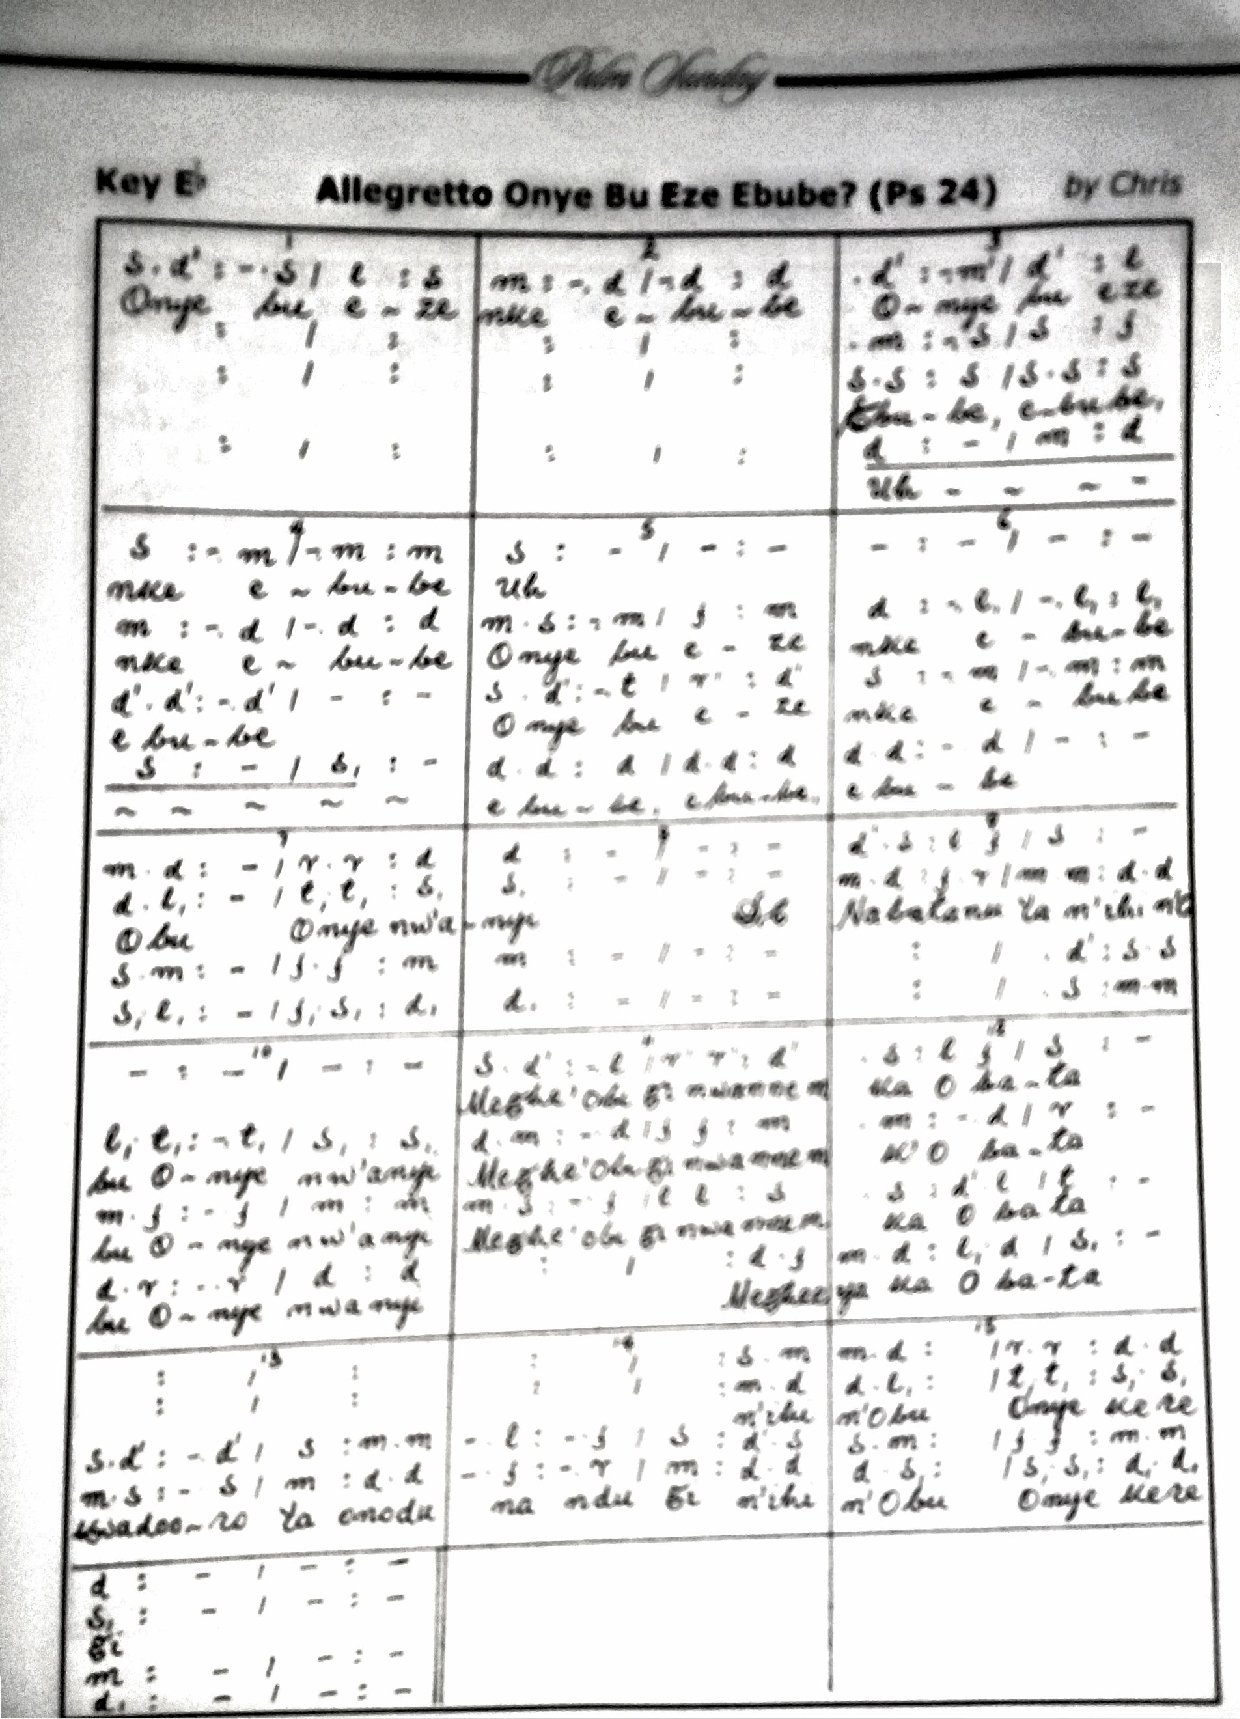 Palm Sunday
Key E♭ Allegretto Onye Bu Eze Ebube? (Ps 24) by Chris
1
s . d' : - . s / l : s
Onye bu e - ze
: / :
: / :
: / :
2
m : - . d / - d : d
nke e - bu - be
: / :
: / :
: / :
3
. d' : - m' / d' : l
O - nye bu eze
. m : - s / s : f
s . s : s / s . s : s
Ebu - be, e - bu be,
d : - / m : d
Uh - ~ ~ -
4
s : - m / - m : m
nke e ~ bu - be
m : - . d / - . d : d
nke e ~ bu - be
d' . d' : - . d' / - : -
e bu - be
s : - / s, : -
~ ~ ~ ~ ~
5
s : - / - : -
Uh
m . s : - m / f : m
Onye bu e - ze
s . d' : - t / r' : d'
Onye bu e - ze
d . d : d / d . d : d
e bu - be, e bu - be,
6
- : - / - : -
d : - l, / - . l, : l,
nke e - bu - be
s : - m / - . m : m
nke e - bu be
d . d : - d / - : -
e bu - be
7
m . d : - / r . r : d
d . l, : - / t, t, : s,
O bu Onye nw'a -
s . m : - / f . f : m
s, l, : - / f, s, : d,
8
d : - / - : -
s, : - / - : -
nyi D.C
m : - / - : -
d, : - / - : -
9
d' . s : l f / s : -
m . d : f . r / m m : d . d
Nabatanu Ya n'ihi n'O
: / . d' : s . s
: / . s : m . m
10
- : - / - : -
l, . t, : - t, / s, : s,
bu O - nye nw'anyi
m . f : - f / m : m
bu O - nye nw'anyi
d . r : - . r / d : d
bu O - nye nwanyi
11
s . d' : - l / r' r' : d'
Meghe'obi gi nwannem
d . m : - d / f f : m
Meghe'obi gi nwannem
m . s : - f / l l : s
Meghe'obi gi nwannem
: / : d . f
Meghee
12
. s : l f / s : -
ka O ba - ta
. m : - d / r : -
k'O ba - ta
. s : d' l / t : -
ka O bata
m . d : l, d / s, : -
ya ka O ba - ta
13
: / :
: / :
s . d' : - d' / s : m . m
m . s : - s / m : d . d
Kwadoo - ro Ya onodu
14
: / : s . m
: / : m . d
n'ihi
- l : - f / s : d' s
- f : - r / m : d . d
na ndu gi n'ihi
15
m . d : / r . r : d . d
d . l, : / t, t, : s, s,
n'Obu Onye kere
s . m : / f f : m . m
d . s, : / s, s, : d, d,
n'Obu Onye kere
d : - / - : -
s, : - / - : -
gi
m : - / - : -
d, : - / - : -